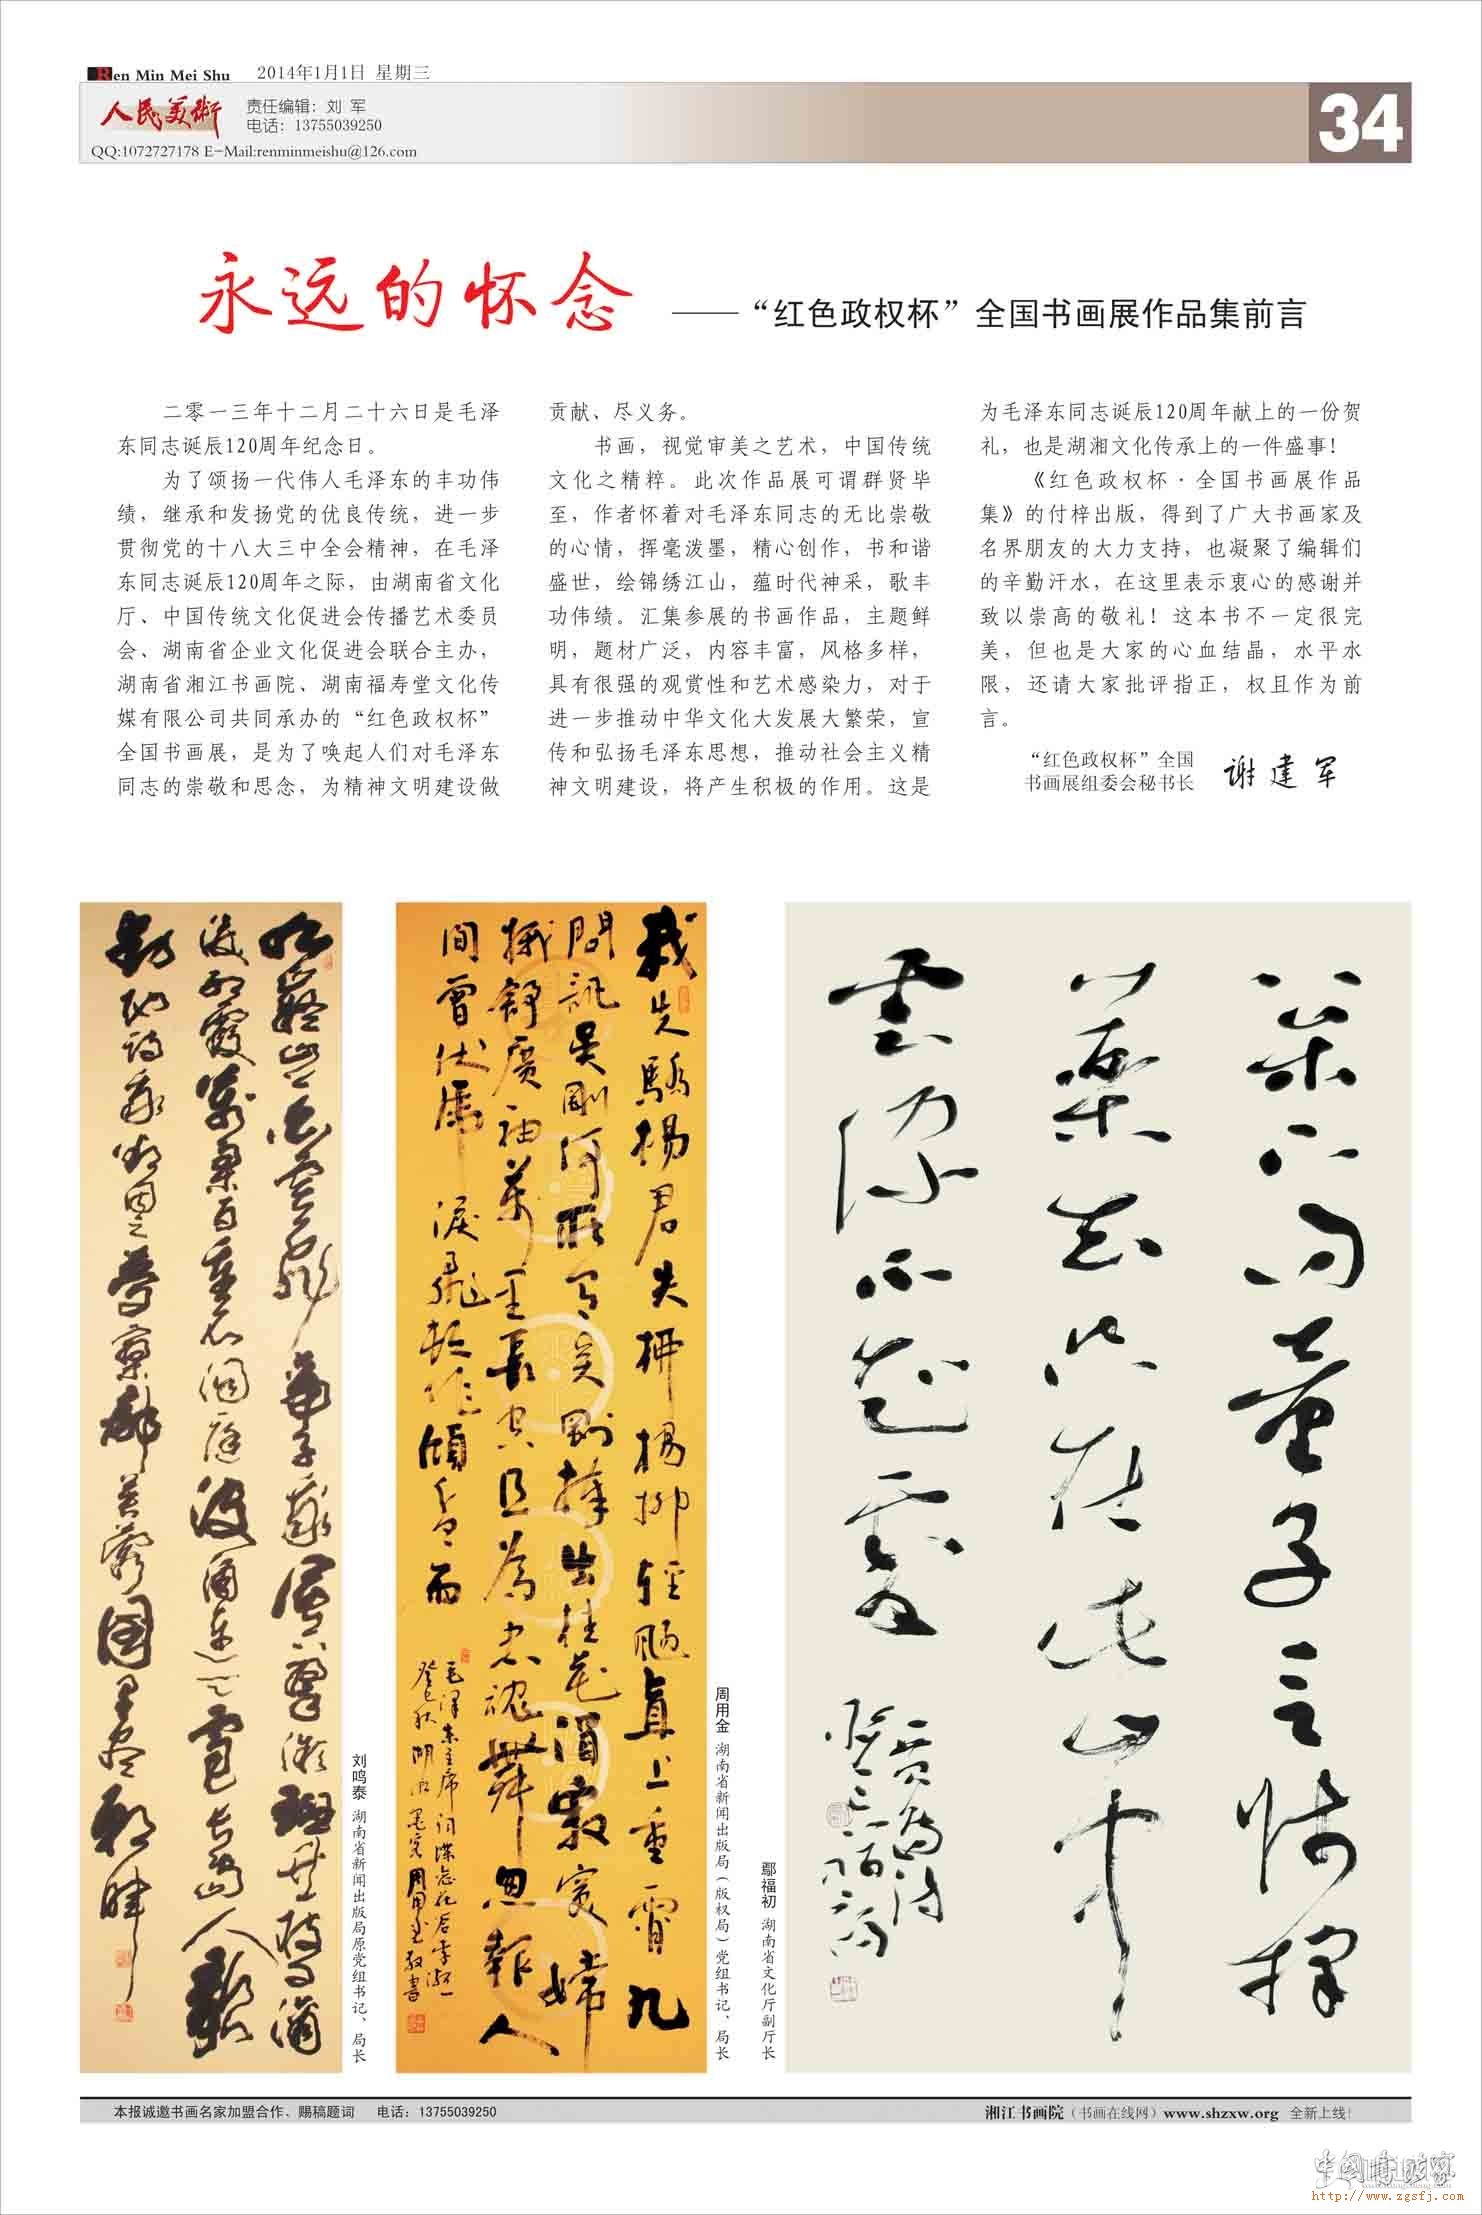 Ren Min Mei Shu 2014年1月1日 星期三
人民美術
责任编辑：刘 军
电话：13755039250
QQ:1072727178 E-Mail:renminmeishu@126.com
34
永远的怀念
——“红色政权杯”全国书画展作品集前言
二零一三年十二月二十六日是毛泽
东同志诞辰120周年纪念日。
为了颂扬一代伟人毛泽东的丰功伟
绩，继承和发扬党的优良传统，进一步
贯彻党的十八大三中全会精神，在毛泽
东同志诞辰120周年之际，由湖南省文化
厅、中国传统文化促进会传播艺术委员
会、湖南省企业文化促进会联合主办，
湖南省湘江书画院、湖南福寿堂文化传
媒有限公司共同承办的“红色政权杯”
全国书画展，是为了唤起人们对毛泽东
同志的崇敬和思念，为精神文明建设做
贡献、尽义务。
书画，视觉审美之艺术，中国传统
文化之精粹。此次作品展可谓群贤毕
至，作者怀着对毛泽东同志的无比崇敬
的心情，挥毫泼墨，精心创作，书和谐
盛世，绘锦绣江山，蕴时代神采，歌丰
功伟绩。汇集参展的书画作品，主题鲜
明，题材广泛，内容丰富，风格多样，
具有很强的观赏性和艺术感染力，对于
进一步推动中华文化大发展大繁荣，宣
传和弘扬毛泽东思想，推动社会主义精
神文明建设，将产生积极的作用。这是
为毛泽东同志诞辰120周年献上的一份贺
礼，也是湖湘文化传承上的一件盛事！
《红色政权杯·全国书画展作品
集》的付梓出版，得到了广大书画家及
各界朋友的大力支持，也凝聚了编辑们
的辛勤汗水，在这里表示衷心的感谢并
致以崇高的敬礼！这本书不一定很完
美，但也是大家的心血结晶，水平水
限，还请大家批评指正，权且作为前
言。
“红色政权杯”全国
书画展组委会秘书长
谢建军
九嶷山上白雲飛帝子乘風下翠微斑竹一枝千滴
淚紅霞萬朵百重衣洞庭波涌連天雪長島人歌
動地詩我欲因之夢寥廓芙蓉國里盡朝暉
刘鸣泰 湖南省新闻出版局原党组书记、局长
我失驕楊君失柳楊柳輕颺直上重霄九
問訊吳剛何所有吳剛捧出桂花酒寂寞嫦
娥舒廣袖萬里長空且為忠魂舞忽報人
間曾伏虎淚飛頓作傾盆雨
毛澤東主席詞蝶戀花答李淑一
周用金 湖南省新闻出版局（版权局）党组书记、局长
松下问童子言师採
藥去只在此山中
雲深不知處
鄢福初 湖南省文化厅副厅长
本报诚邀书画名家加盟合作、赐稿题词 电话：13755039250
湘江书画院（书画在线网）www.shzxw.org 全新上线！
http://www.zgsfj.com